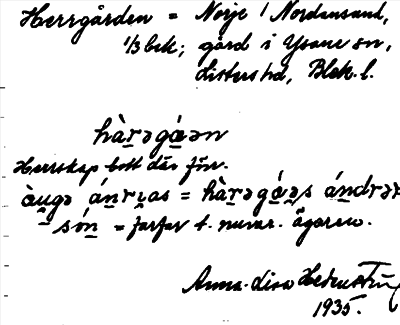 Herrgården = Norje / Nordansand,
1/3 bek; gård i Ysane sn,
Listers hd, Blek. l.
hàrəgǻən
Herrskap bott där förr.
àugə ánrias = hàrəgǻəs ándrəs
són = farfar t. nuvar. ägaren.
Anna-Lisa
1935.